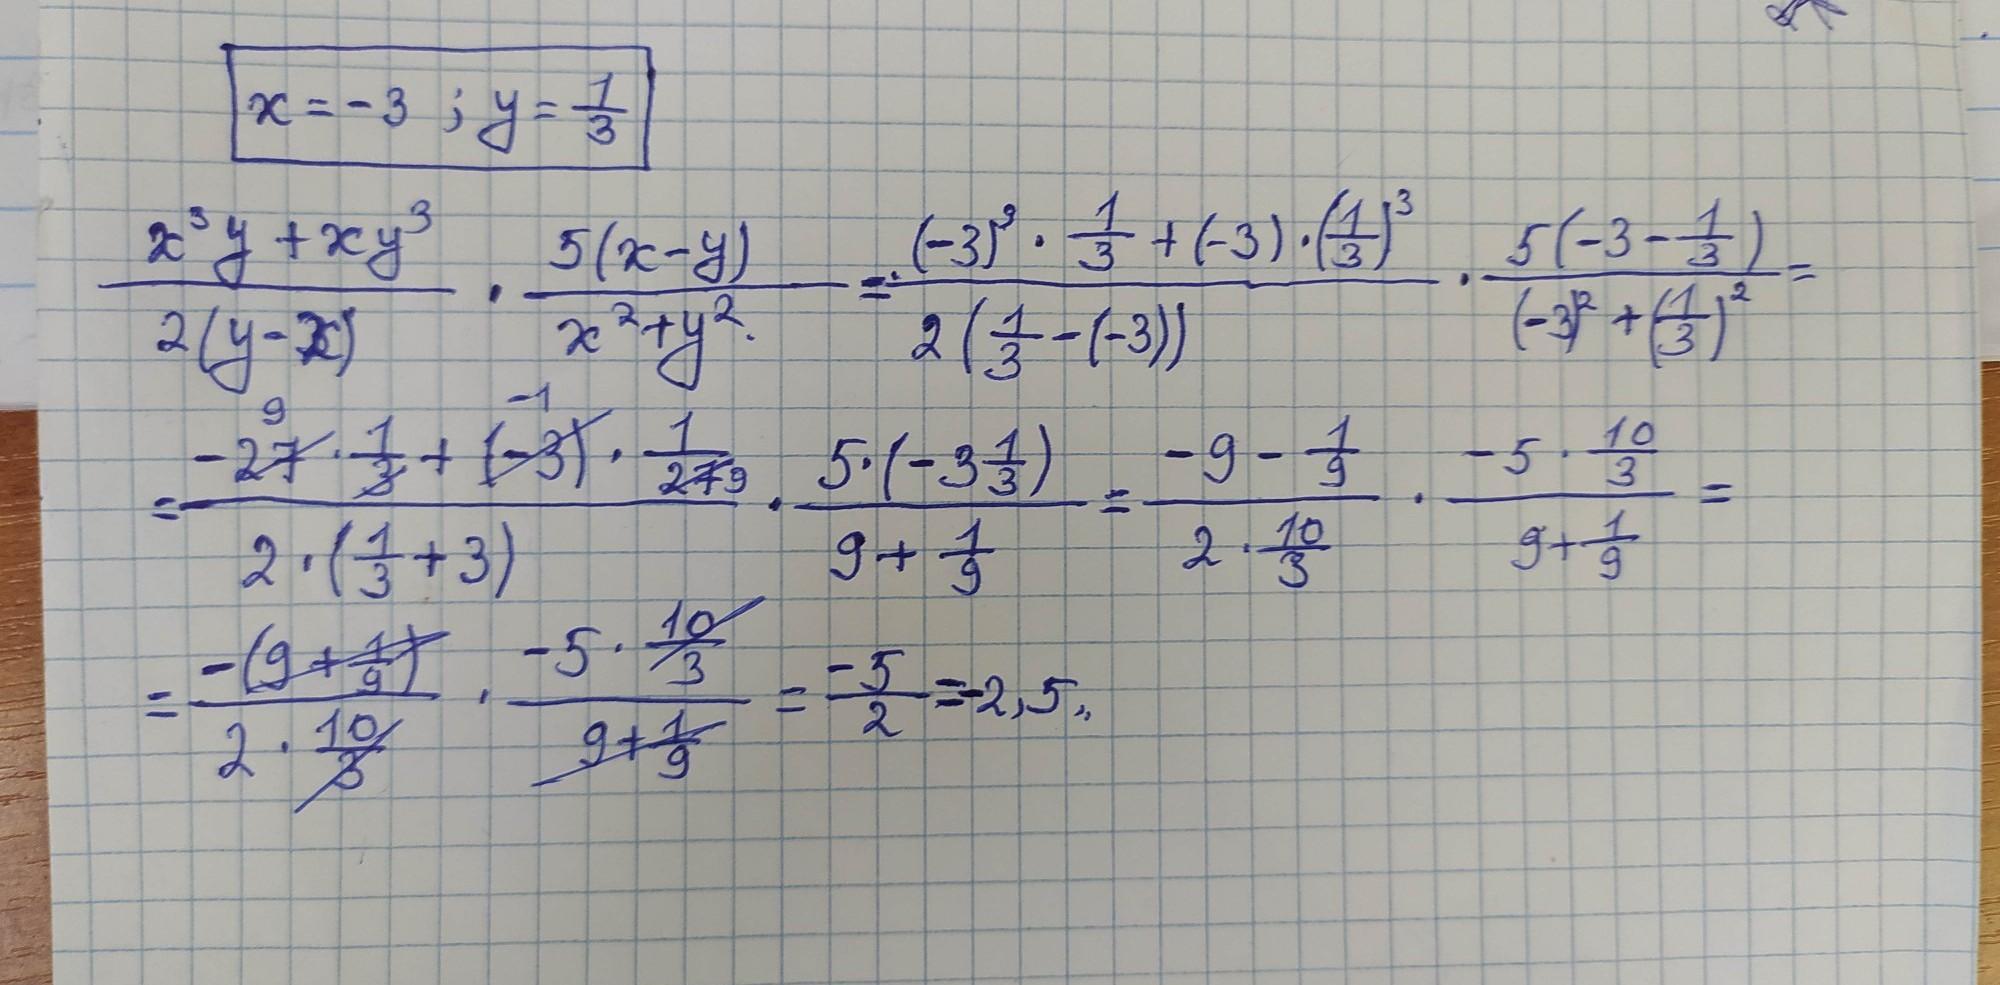 x = -3 ; y = 1/3
(x³y + xy³)/(2(y-x)) · (5(x-y))/(x²+y²) = ((-3)³ · 1/3 + (-3) · (1/3)³)/(2(1/3 - (-3))) · (5(-3 - 1/3))/((-3)² + (1/3)²) =
= (-27 · 1/3 + (-3) · 1/27)/(2 · (1/3 + 3)) · (5 · (-3 1/3))/(9 + 1/9) = (-9 - 1/9)/(2 · 10/3) · (-5 · 10/3)/(9 + 1/9) =
= (-(9 + 1/9))/(2 · 10/3) · (-5 · 10/3)/(9 + 1/9) = -5/2 = -2,5.